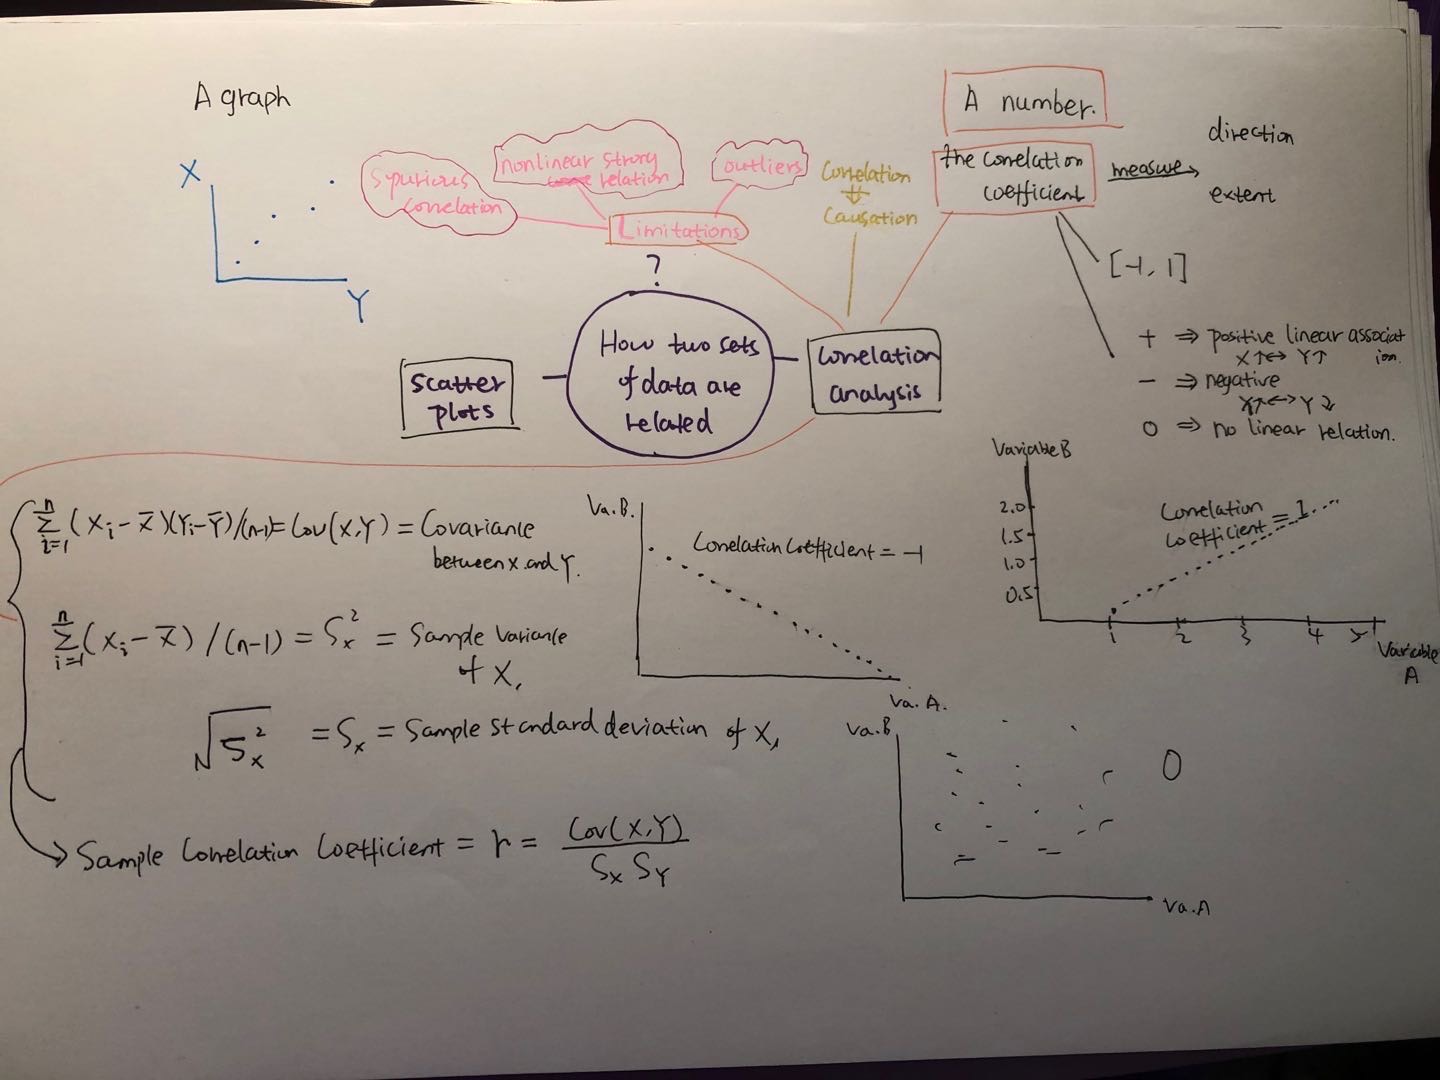 A graph
X
Y
Spurious
correlation
nonlinear strong
relation
outliers
Limitations
Correlation
⇏
Causation
A number.
the correlation
coefficient
measure
direction
extent
[-1, 1]
+ ⇒ positive linear associat
ion.
X↑↔ Y↑
- ⇒ negative
X↑↔Y↓
0 ⇒ no linear relation.
?
How two sets
of data are
related
Scatter
plots
Correlation
analysis
n
Σ (Xi - X̄)(Yi - Ȳ)/(n-1) = Cov(X,Y) = Covariance
i=1
between X and Y.
n
Σ (Xi - X̄) / (n-1) = Sx² = Sample Variance
i=1
of X,
√Sx² = Sx = Sample standard deviation of X,
Sample Correlation Coefficient = r = Cov(X,Y) / Sx SY
Va.B.
Correlation Coefficient = -1
Va.A.
Variable B
2.0
1.5
1.0
0.5
Correlation
Coefficient = 1
1 2 3 4
Variable
A
Va.B
0
Va.A